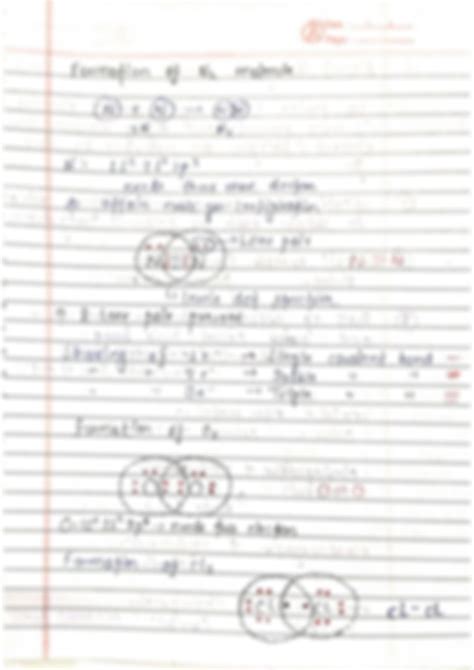 Formation of N₂ molecule
N + N → N N
2N N₂
N = 1s² 2s² 2p³
needs three more electron
attain noble gas configuration
Lone pair
N N
N ≡ N
Lewis dot structure
2 Lone pair present
Sharing of 2e⁻ → Single covalent bond —
" " 4e⁻ → Double " " =
" " → Triple " " ≡
Formation of O₂
O O
O = O
needs two electron
Formation of Cl₂
Cl Cl
Cl - Cl